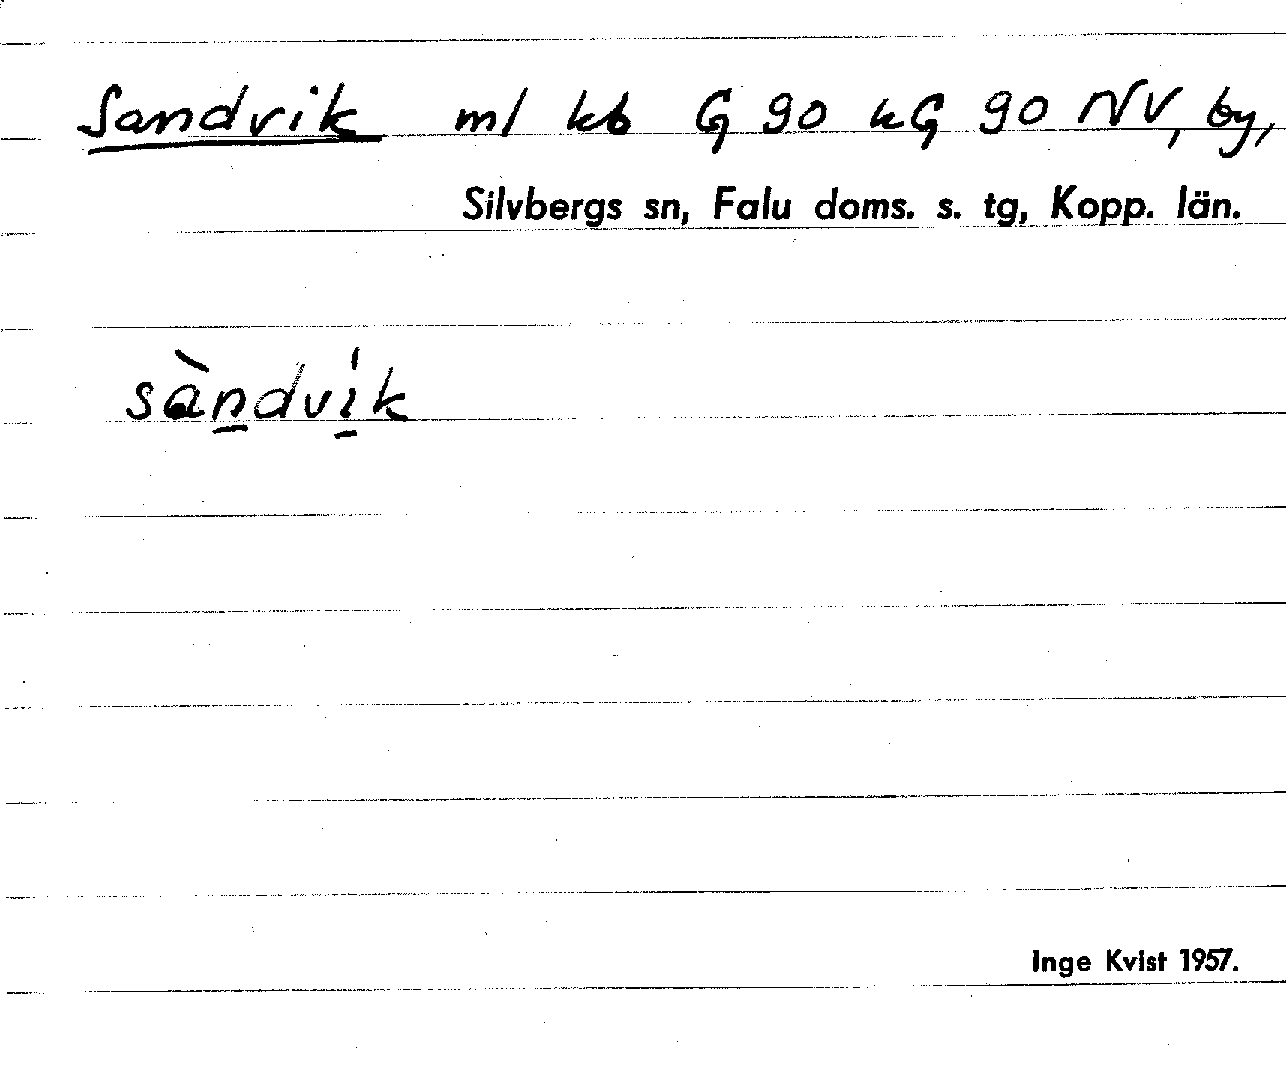 Sandvik ml kb G 90 kG 90 NV, by,
Silvbergs sn, Falu doms. s. tg, Kopp. län.
sàndvik
Inge Kvist 1957.